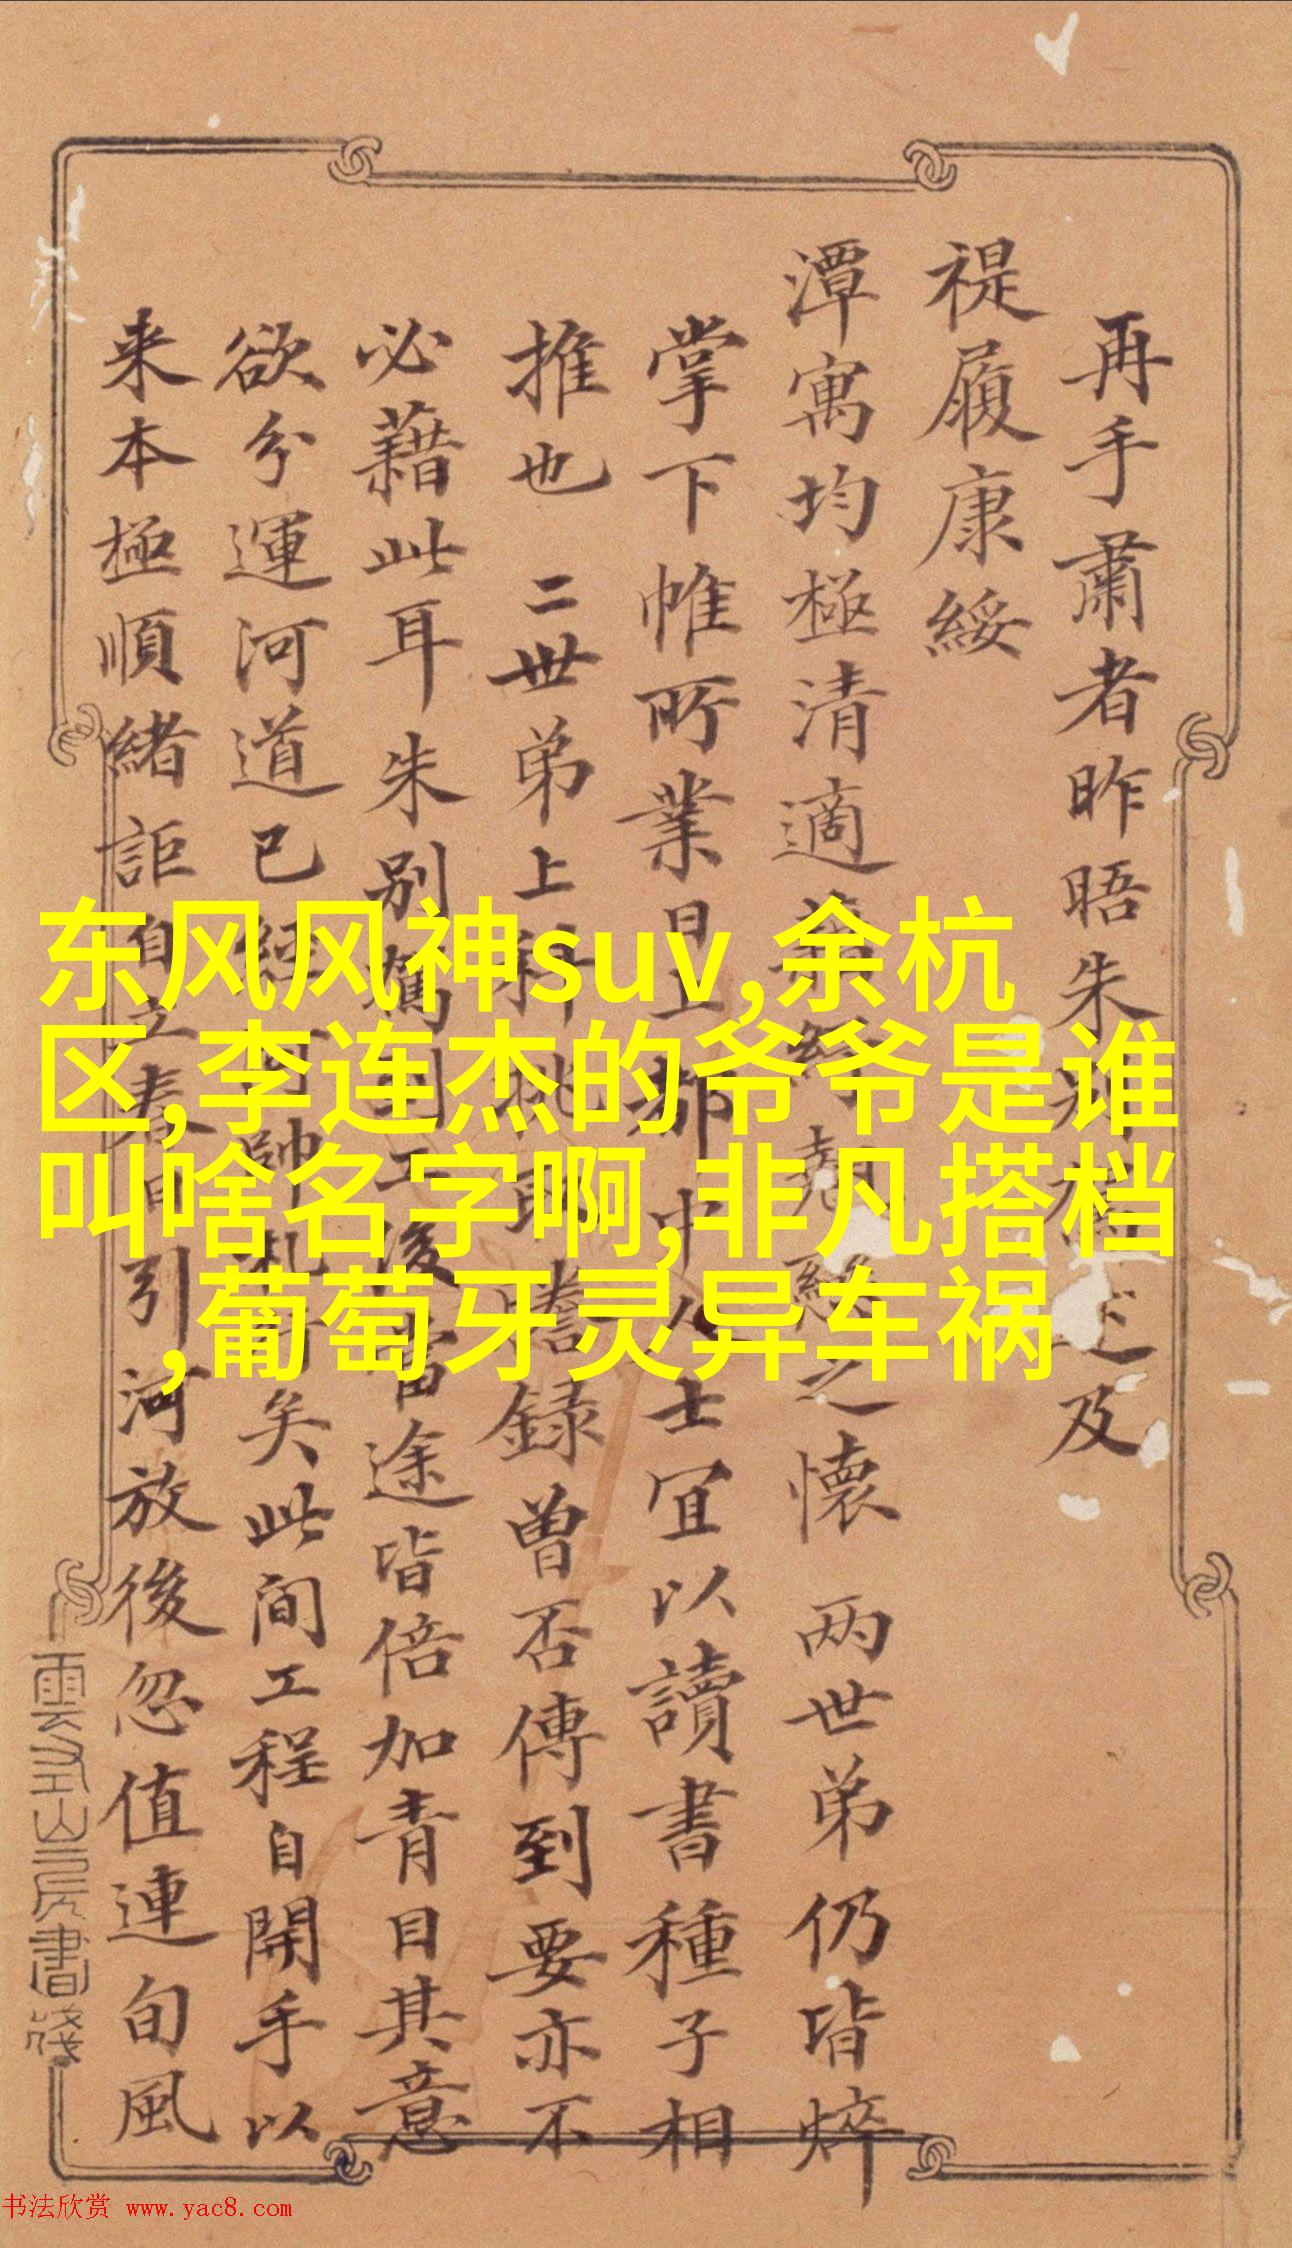 再手肅者昨晤朱別及
禔履康綏
潭寓均極清適之懷兩世弟仍皆焠
掌下帷所業日上都中人士宜以讀書種子相
推也二世弟上科挑取謄錄曾否傳到要亦不
必藉此耳朱別駕到工後當途皆倍加青目其意
欲分運河道已經河帥札行矣此間工程自開手以
来本極順緒詎自立春日引河放後忽值連旬風
雲山房書牋
东风风神suv,余杭
区,李连杰的爷爷是谁
叫啥名字啊,非凡搭档
,葡萄牙灵异车祸
书法欣赏 www.yac8.com